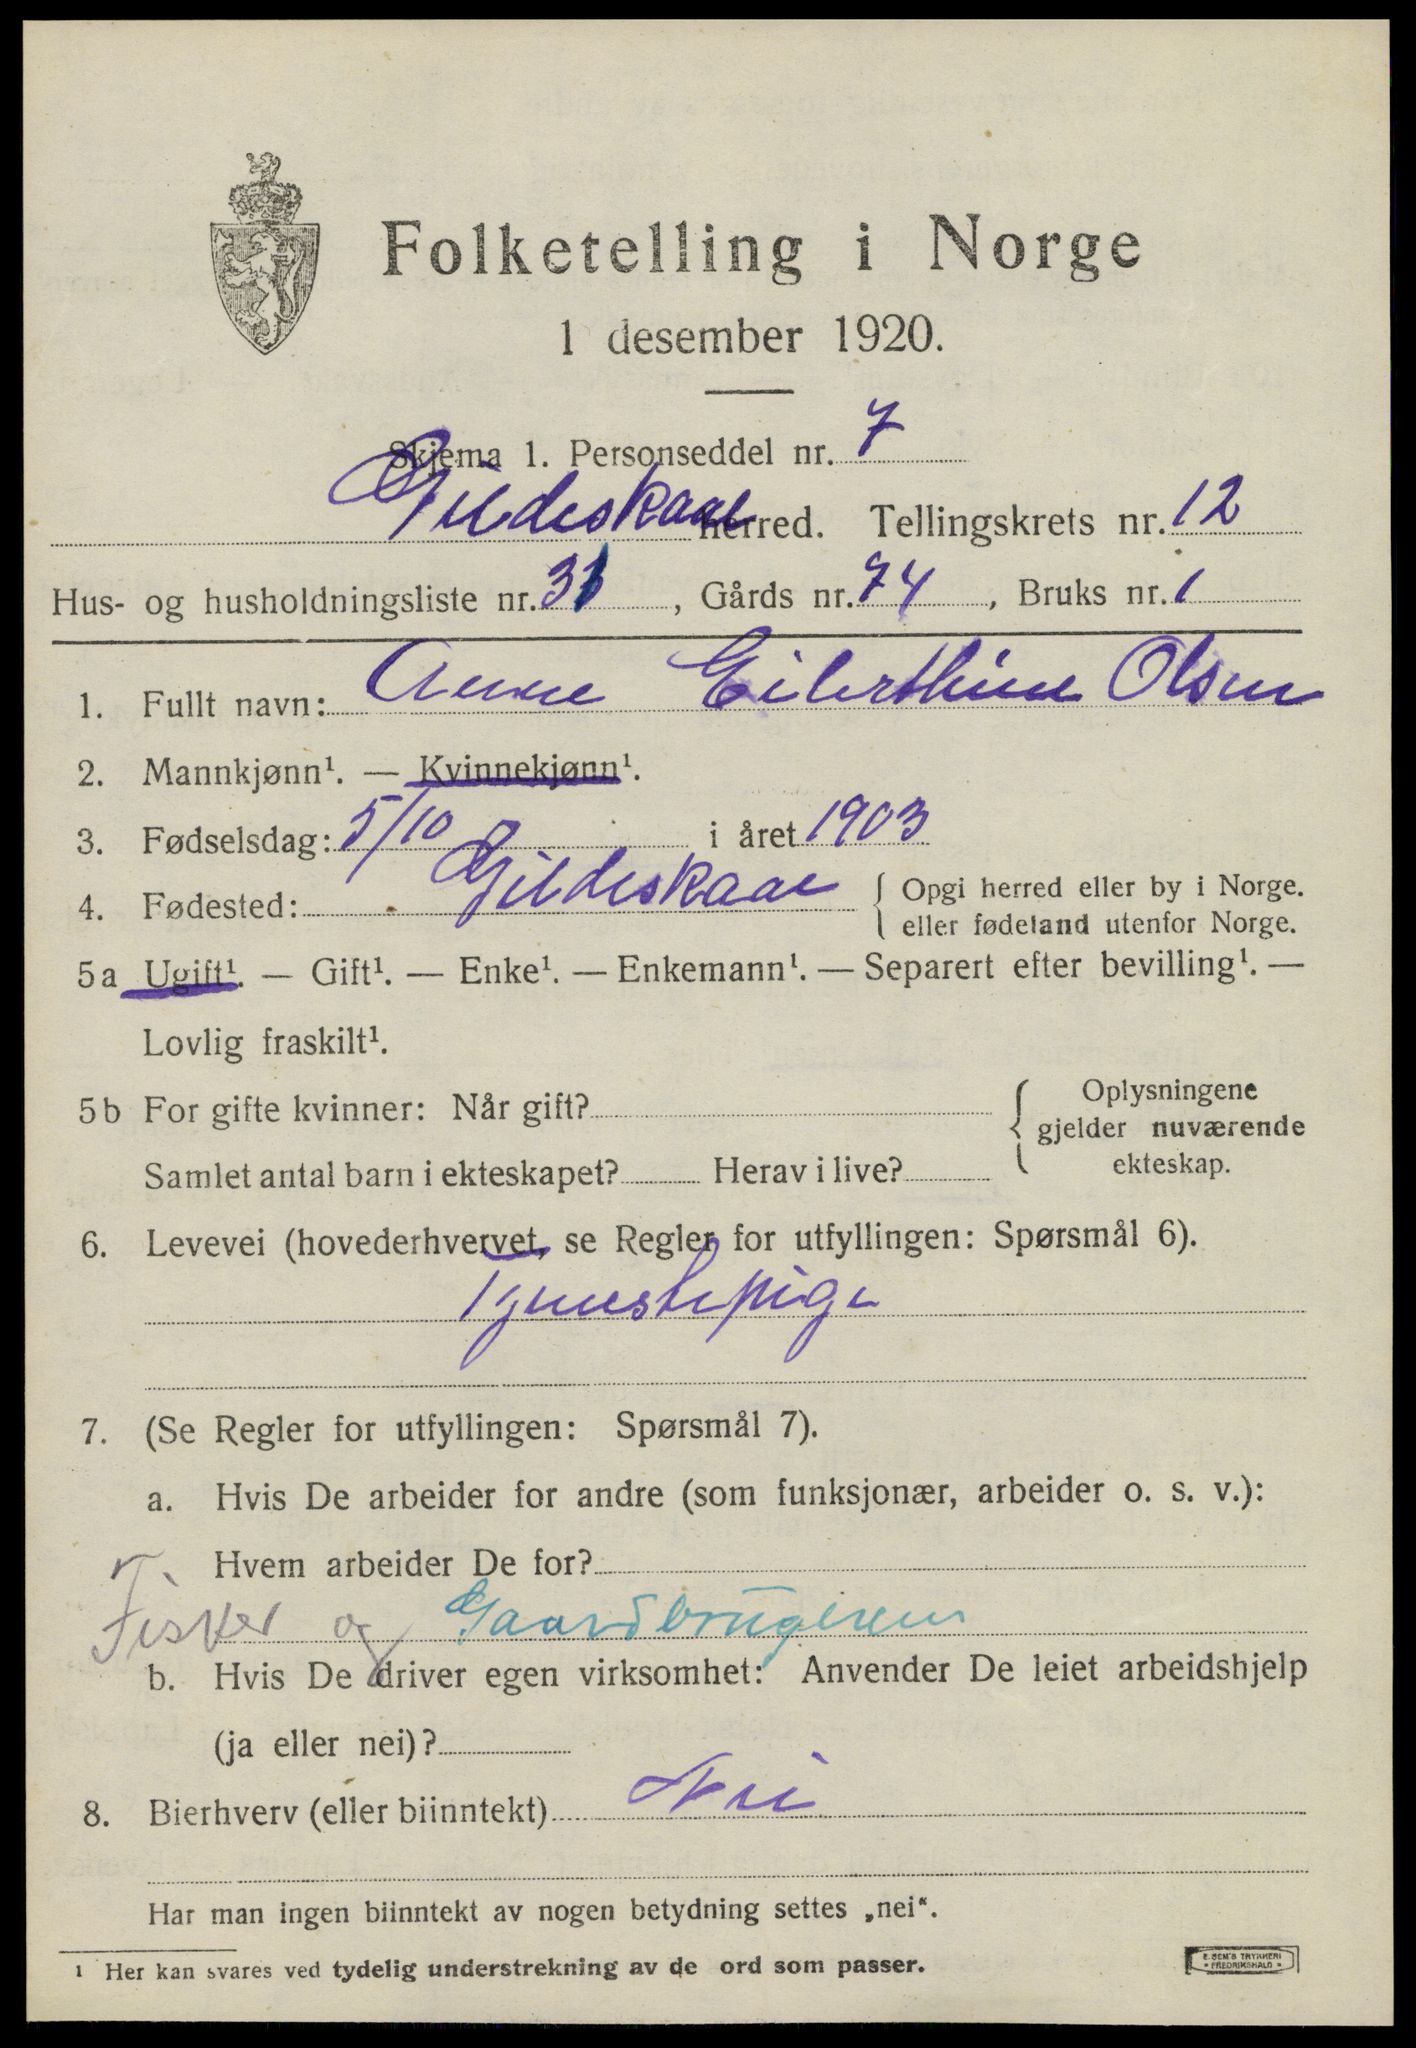 Folketelling i Norge
1 desember 1920.
Skjema 1. Personseddel nr. 7
Gildeskaal herred. Tellingskrets nr. 12
Hus- og husholdningsliste nr. 31, Gårds nr. 74, Bruks nr. 1
1. Fullt navn: Anne Eilerthine Olsen
2. Mannkjønn¹. — Kvinnekjønn¹.
3. Fødselsdag: 5/10 i året 1903
4. Fødested: Gildeskaal { Opgi herred eller by i Norge.
eller fødeland utenfor Norge.
5a Ugift¹. — Gift¹. — Enke¹. — Enkemann¹. — Separert efter bevilling¹. —
Lovlig fraskilt¹.
5b For gifte kvinner: Når gift? { Oplysningene
gjelder nuværende
ekteskap.
Samlet antal barn i ekteskapet? Herav i live?
6. Levevei (hovederhvervet, se Regler for utfyllingen: Spørsmål 6).
Tjenestepige
7. (Se Regler for utfyllingen: Spørsmål 7).
a. Hvis De arbeider for andre (som funksjonær, arbeider o. s. v.):
Hvem arbeider De for?
Fisker og Gaardbrugeren
b. Hvis De driver egen virksomhet: Anvender De leiet arbeidshjelp
(ja eller nei)?
8. Bierhverv (eller biinntekt) Nei
Har man ingen biinntekt av nogen betydning settes „nei“.
¹ Her kan svares ved tydelig understrekning av de ord som passer.
E. SEM'S TRYKKERI
• FREDRIKSHALD •